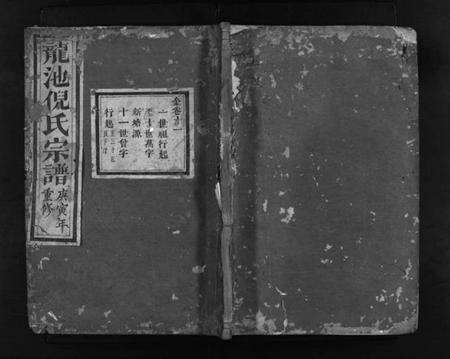 龍池倪氏宗譜
庚寅年
重修
金卷之一
一世祖行起
至十世萬字
新塘源
十一世曾字
行起